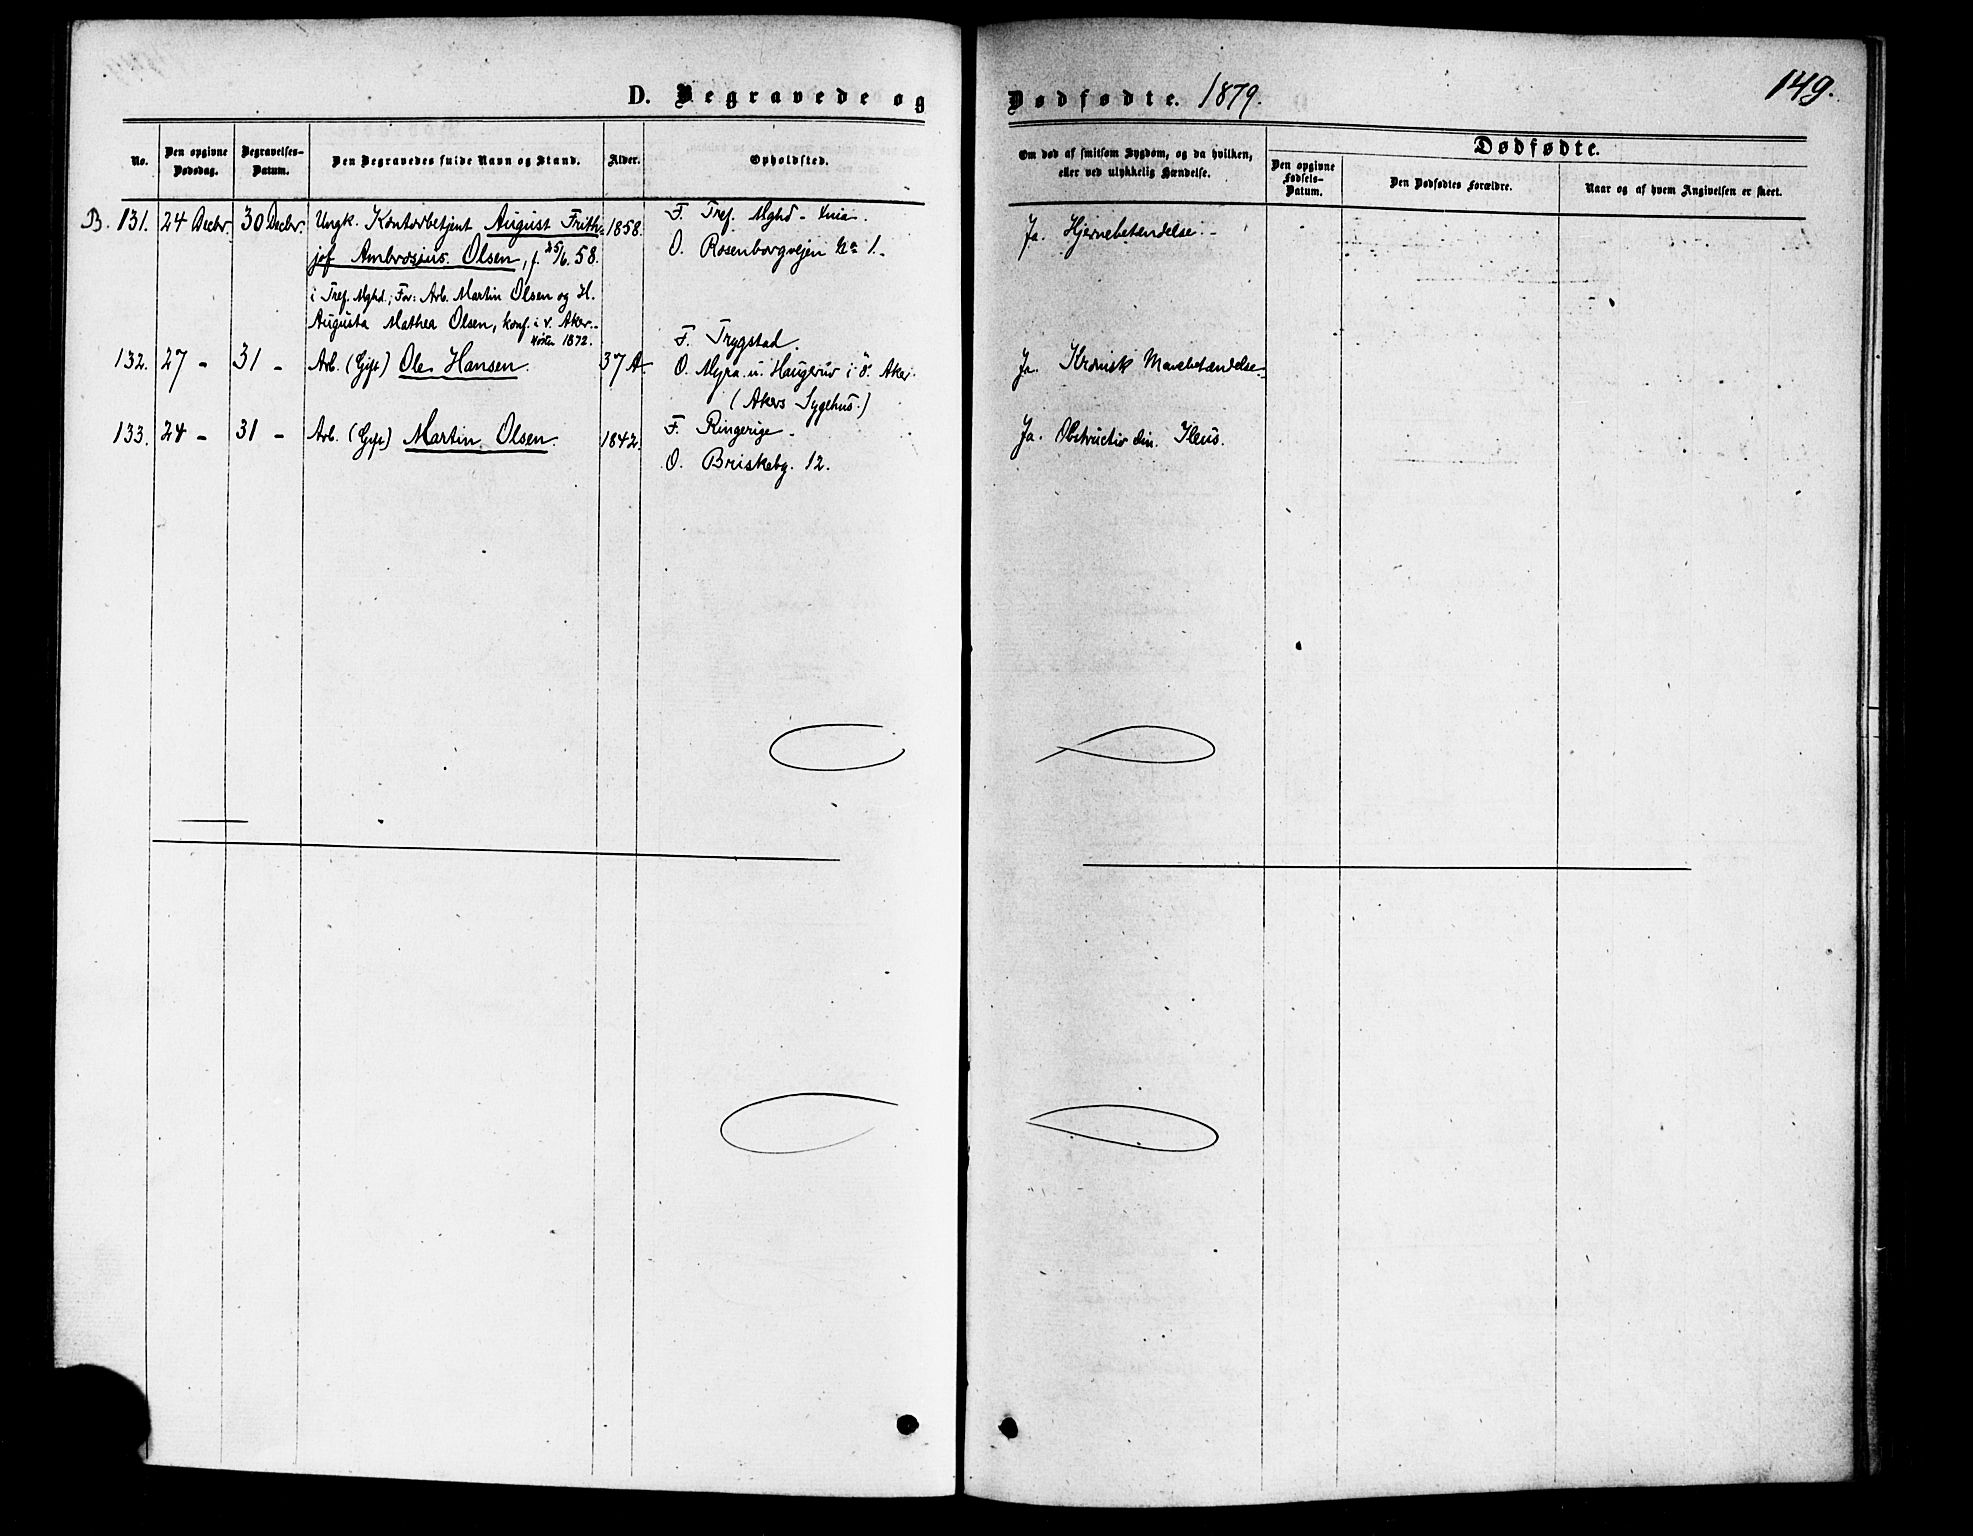 149.
D. Begravede og Dødfødte. 1879.
No.
Den opgivne Dødsdag.
Begravelses-Datum.
Den Begravedes fulde Navn og Stand.
Alder.
Opholdsted.
Om død af smitsom Sygdom, og da hvilken,
eller ved ulykkelig Hændelse.
Dødfødte.
Den opgivne Fødsels-Datum.
Den Dødfødtes Forældre.
Naar og af hvem Angivelsen er skeet.
B. 131. 24 Decbr. 30 Decbr. Ungk. Kontorbetjent August Frith- 1858. F. Tref. Mghd - Xnia. Ja. Hjernebetændelse.
jof Ambrosius Olsen, f. 25/6. 58. O. Rosenborgvejen No 1.
i Tref. Mghd.; For: Arb. Martin Olsen og H.
Augusta Mathea Olsen, konf. i v. Aker
Høsten 1872.
F. Trygstad.
132. 27 - 31 - Arb. (Gift) Ole Hansen. 37 A. O. Myra u. Haugerud i Ö. Aker. Ja. Kronisk Mavebetændelse.
(Akers Sygehus.)
133. 24 - 31 - Arb. (Gift) Martin Olsen. 1842. F. Ringerige. Ja. Obstructio Ileus.
O. Briskeby. 12.